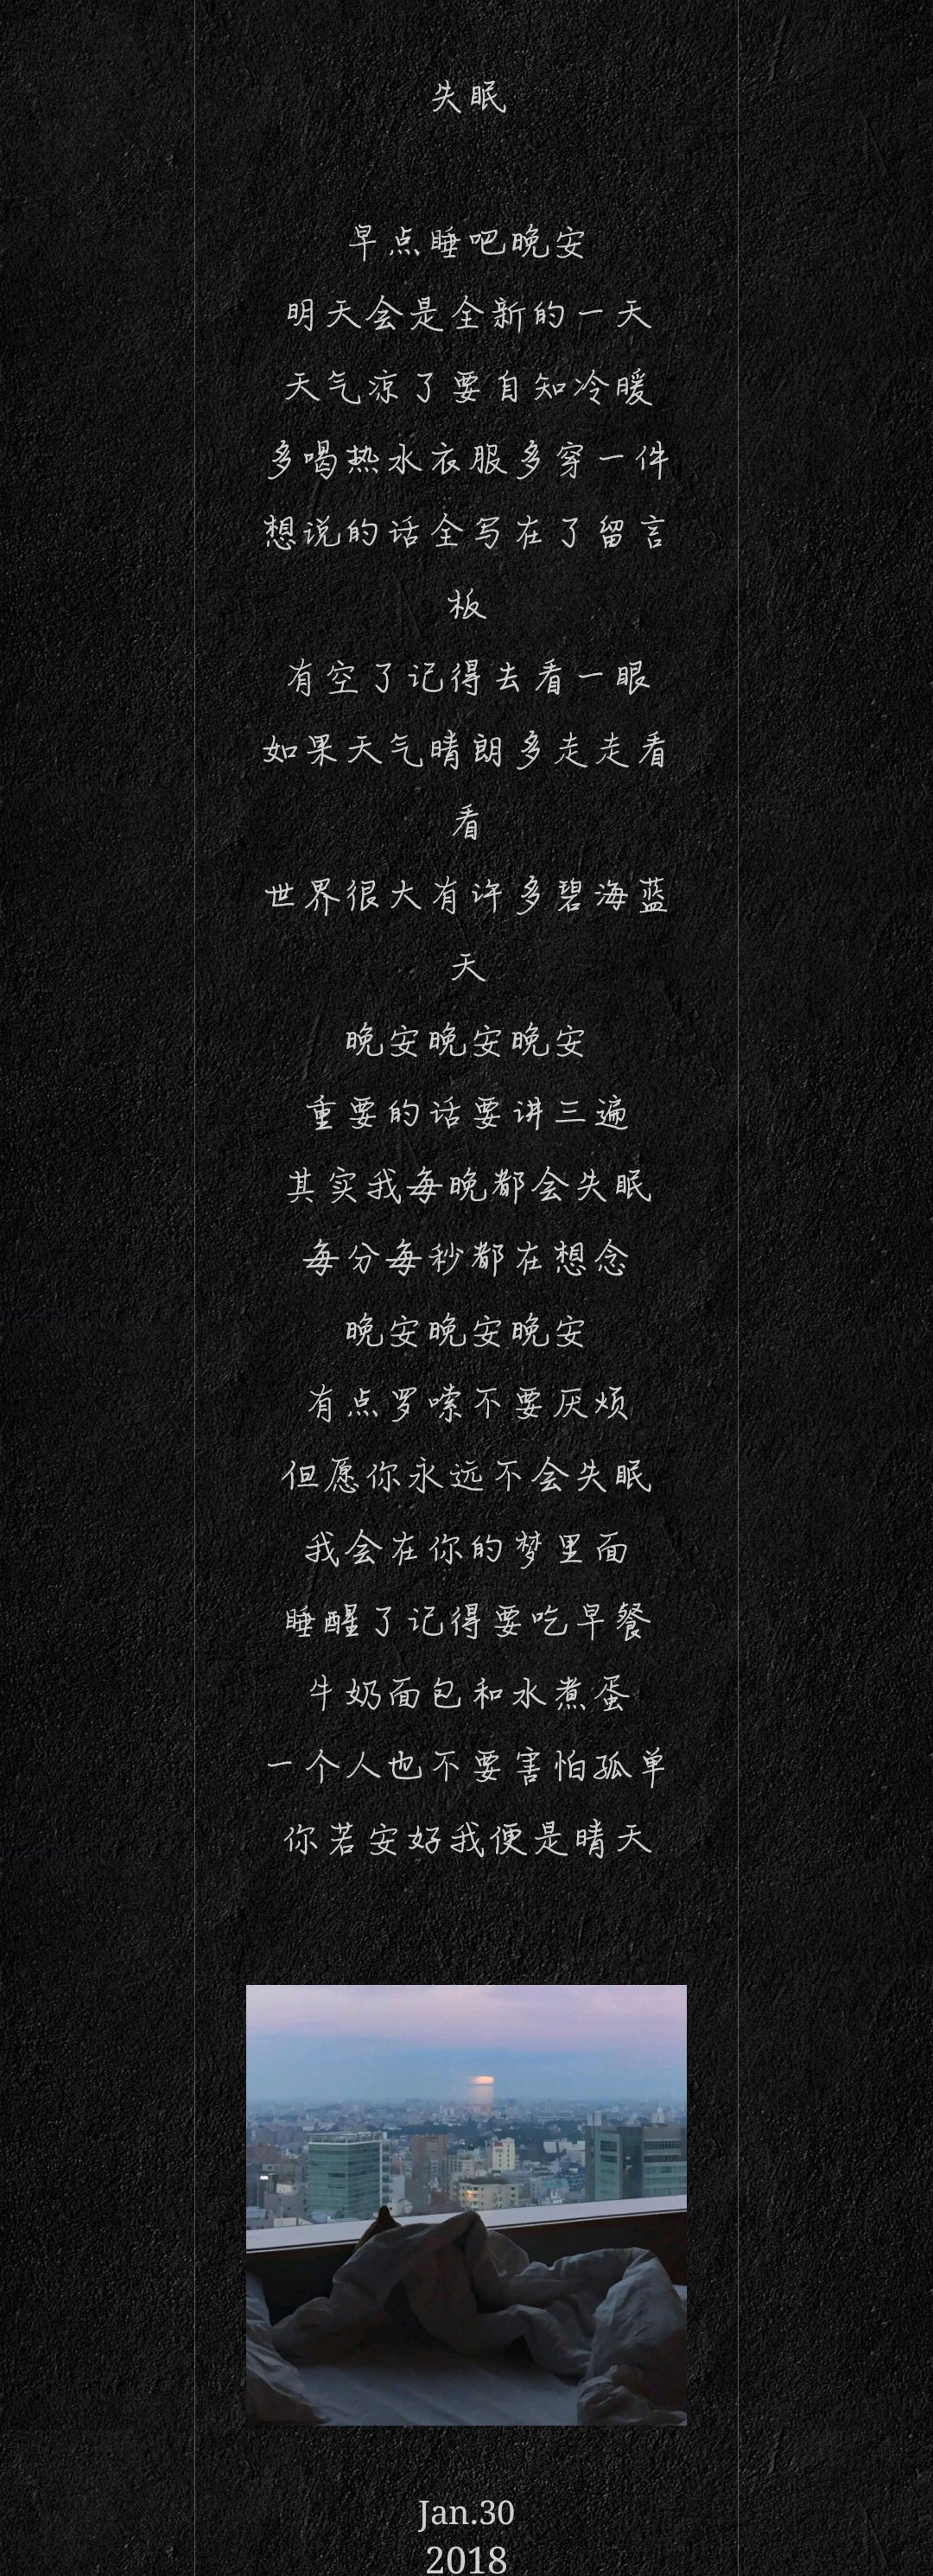 失眠
早点睡吧晚安
明天会是全新的一天
天气凉了要自知冷暖
多喝热水衣服多穿一件
想说的话全写在了留言
板
有空了记得去看一眼
如果天气晴朗多走走看
看
世界很大有许多碧海蓝
天
晚安晚安晚安
重要的话要讲三遍
其实我每晚都会失眠
每分每秒都在想念
晚安晚安晚安
有点罗嗦不要厌烦
但愿你永远不会失眠
我会在你的梦里面
睡醒了记得要吃早餐
牛奶面包和水煮蛋
一个人也不要害怕孤单
你若安好我便是晴天
Jan.30
2018